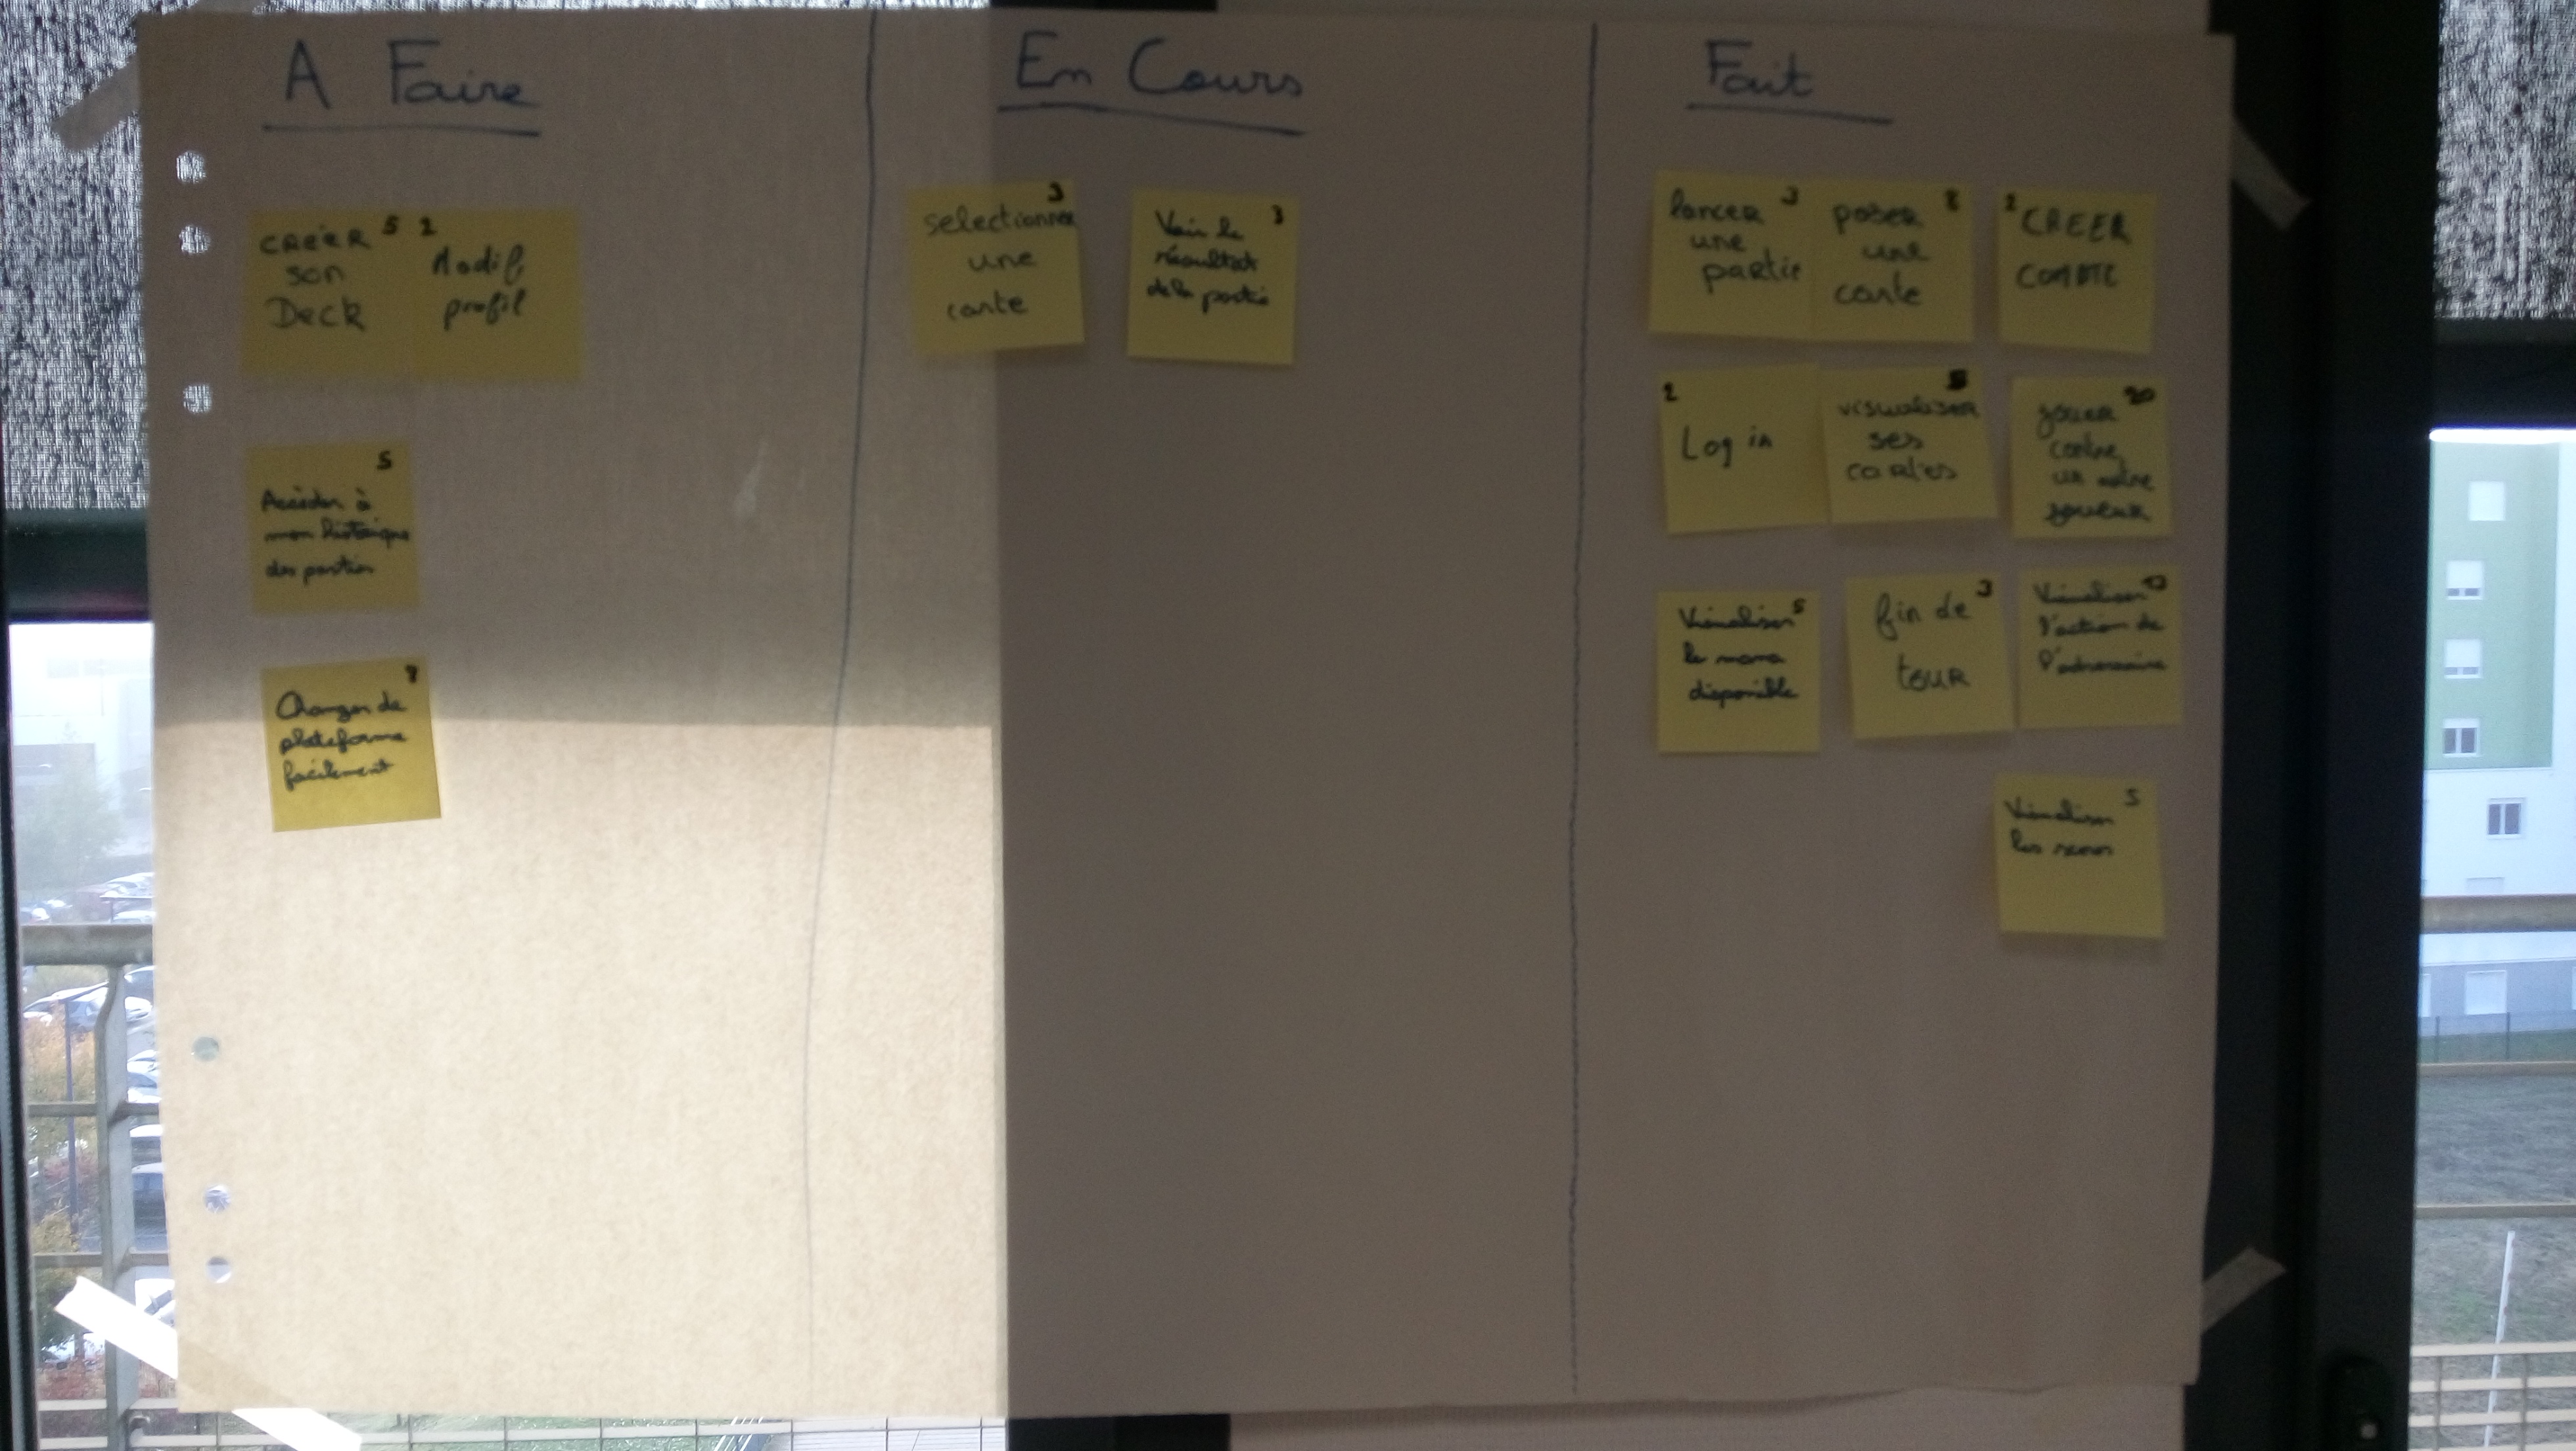 A Faire
CREER 5
son
Deck
2
Modif
profil
5
Accéder à
mon historique
des parties
Changer de
plateforme
facilement
En Cours
3
selectionner
une
carte
Voir le 3
résultat
de la partie
Fait
lancer 3
une
partie
poser 8
une
carte
CREER
COMPTE
2
Log in
visualiser
ses
cartes
jouer 20
contre
un autre
joueur
Visualiser 5
le mana
disponible
fin de 3
tour
Visualiser
l'action de
l'adversaire
5
Visualiser
les